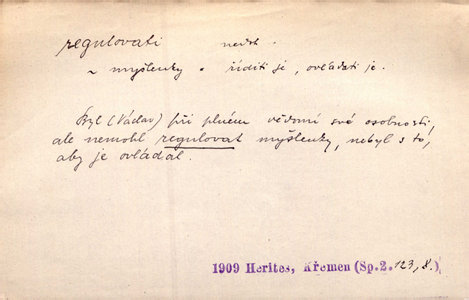 regulovati nedok.
~ myšlenky = říditi je, ovládati je.
Byl (Václav) při plném vědomí své osobnosti,
ale nemohl regulovat myšlenky, nebyl s to,
aby je ovládal.
1909 Herites, Křemen (Sp. 2. 123, 8.)